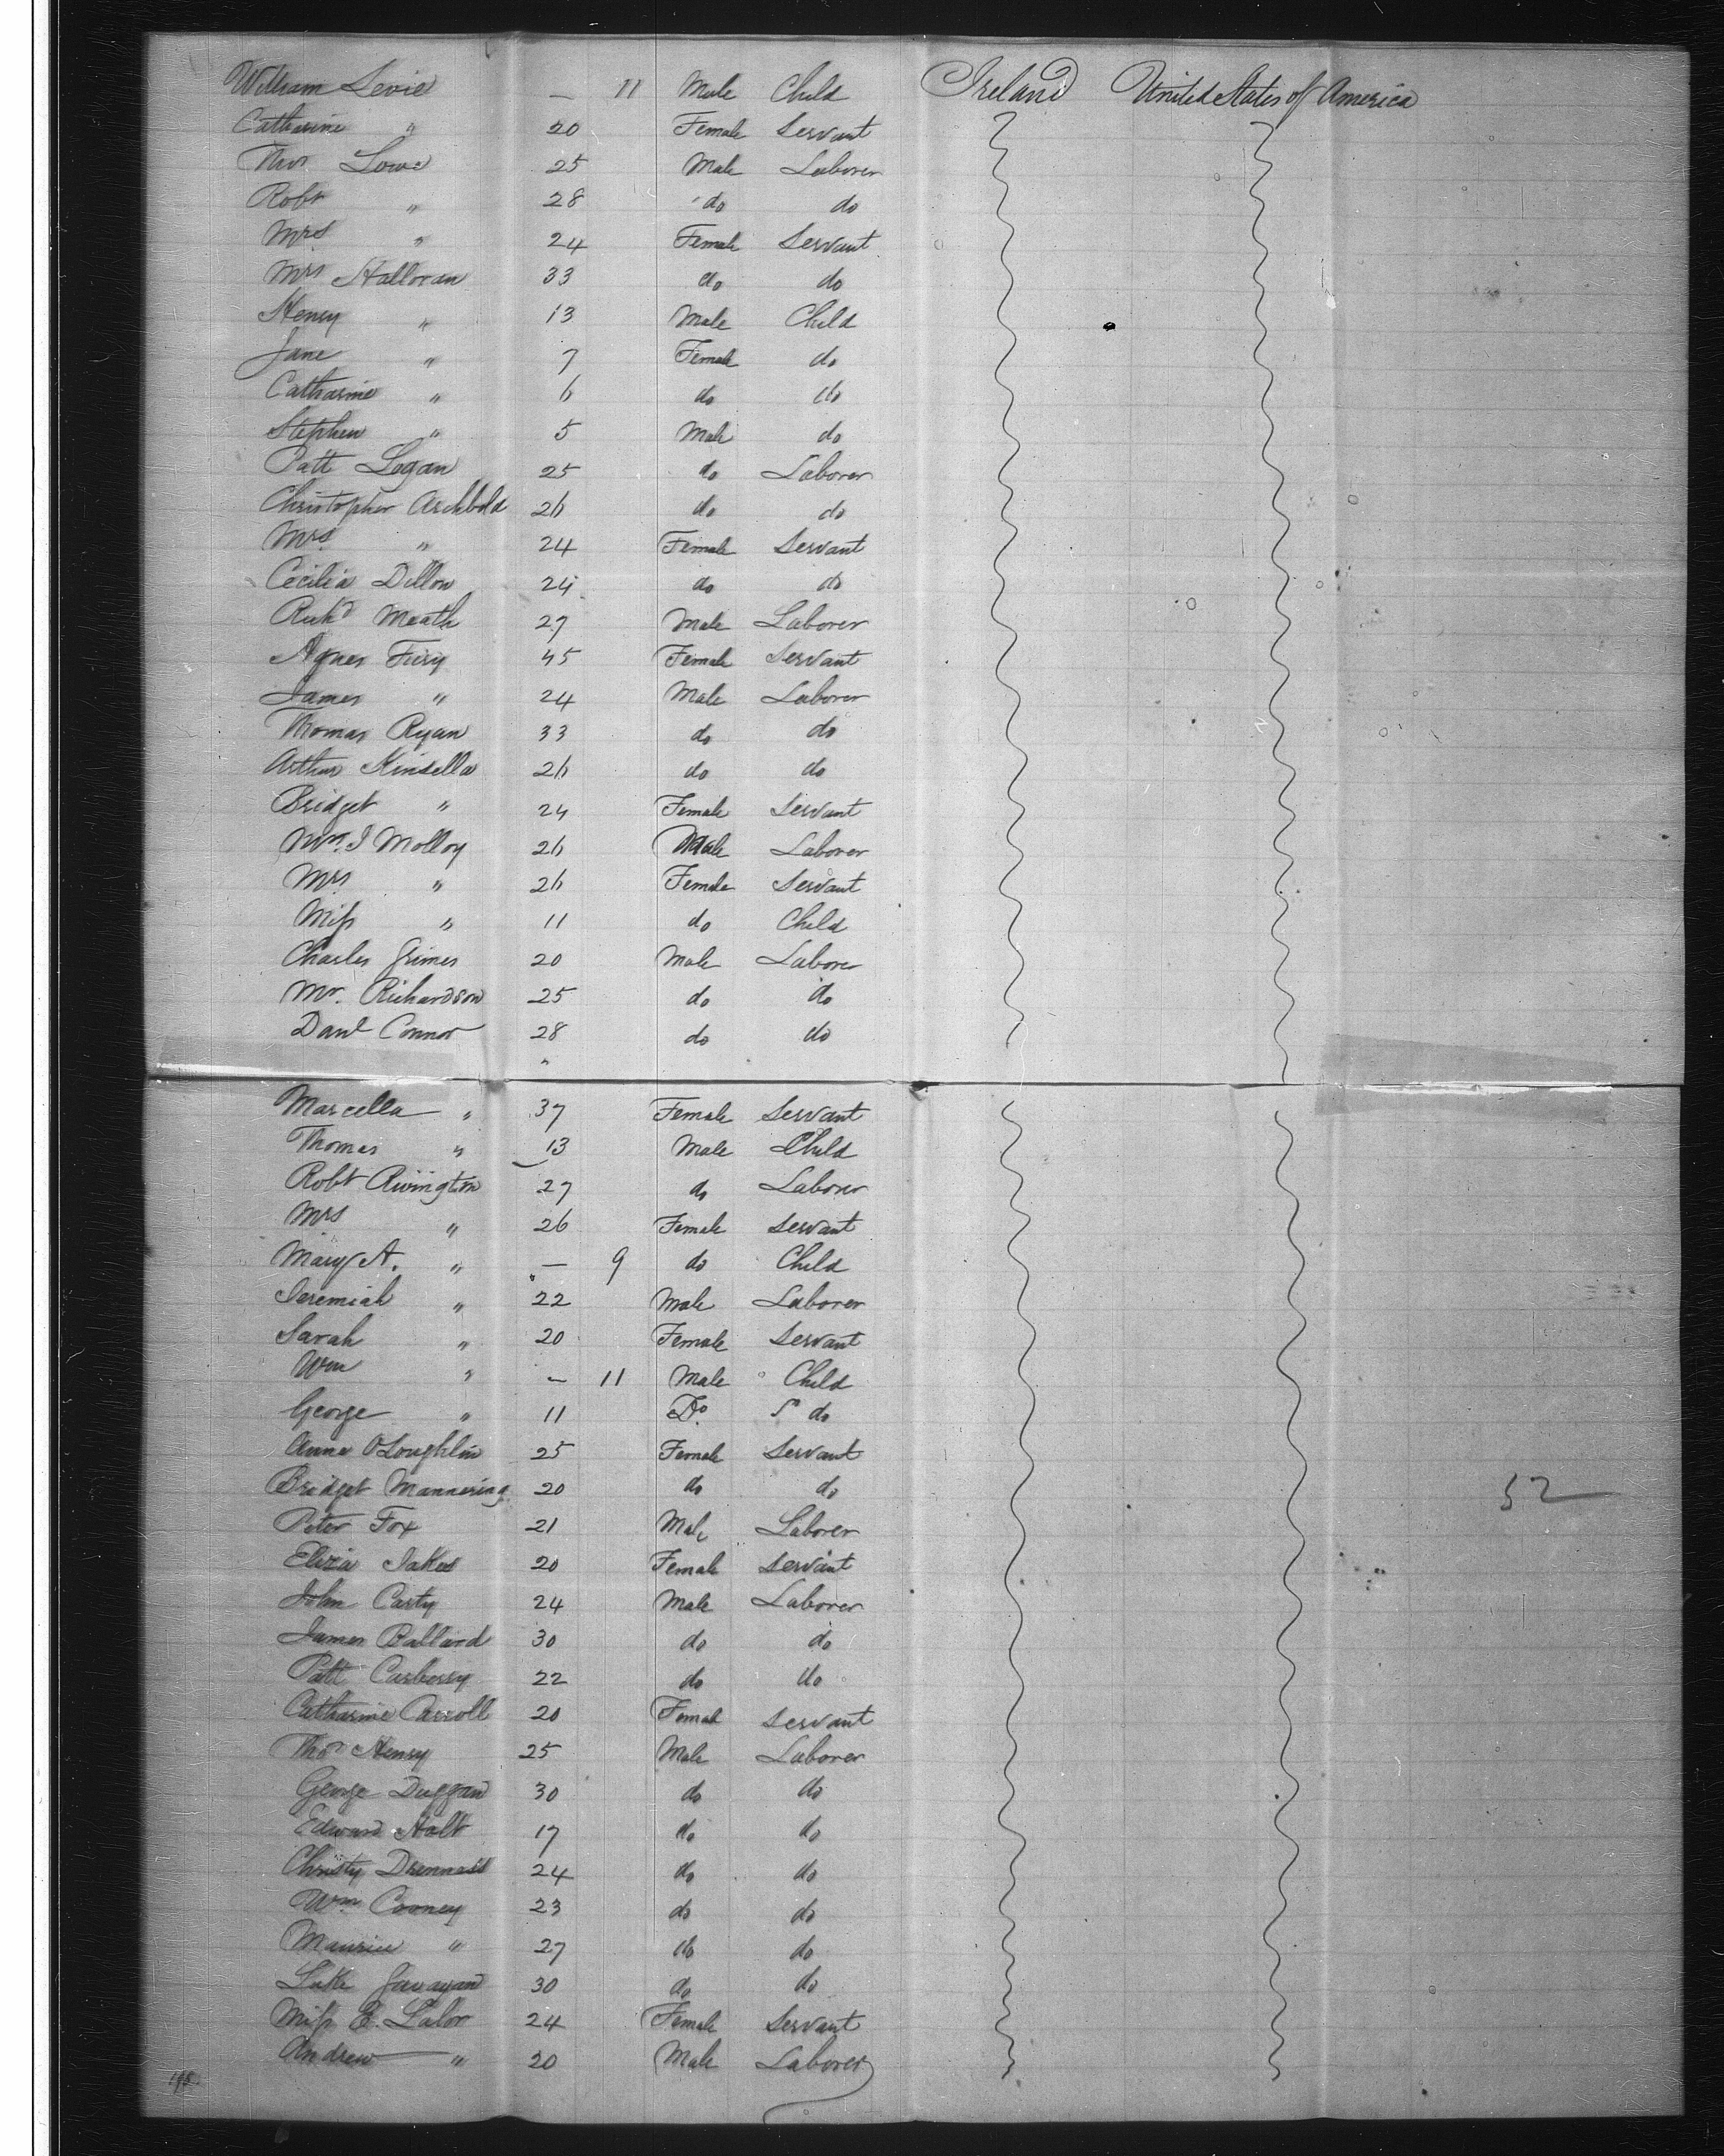 William Levie — 11 Male Child Ireland United States of America
Catharine " 20 Female Servant
Thos Lowe 25 Male Laborer
Robt " 28 do do
Mrs " 24 Female Servant
Mrs Halloran 33 do do
Henry " 13 Male Child
Jane " 7 Female do
Catharine " 6 do do
Stephen " 5 Male do
Patt Logan 25 do Laborer
Christopher Archbold 26 do do
Mrs " 24 Female Servant
Cecilia Dillon 24 do do
Richd Meath 27 Male Laborer
Agnes Fury 45 Female Servant
James " 24 Male Laborer
Thomas Ryan 33 do do
Arthur Kinsella 26 do do
Bridget " 24 Female Servant
Wm. J Molloy 26 Male Laborer
Mrs " 26 Female Servant
Miss " 11 do Child
Charles Grimes 20 Male Laborer
Mr. Richardson 25 do do
Danl Connor 28 do do
"
Marcella " 37 Female Servant
Thomas " 13 Male Child
Robt Rivington 27 do Laborer
Mrs " 26 Female Servant
Mary A. " — 9 do Child
Jeremiah " 22 Male Laborer
Sarah " 20 Female Servant
Wm " — 11 Male Child
George " 11 Do do
Anna O'Loughlin 25 Female Servant
Bridget Mannering 20 do do 52
Peter Fox 21 Male Laborer
Eliza Jakes 20 Female Servant
John Carty 24 Male Laborer
James Ballard 30 do do
Patt Carberry 22 do do
Catharine Carroll 20 Female Servant
Thos Henry 25 Male Laborer
George Duggan 30 do do
Edward Holt 17 do do
Christy 24 do do
Wm Cooney 23 do do
Maurice " 27 do do
Luke Gavagan 30 do do
Miss E. Lalor 24 Female Servant
Andrew " 20 Male Laborer